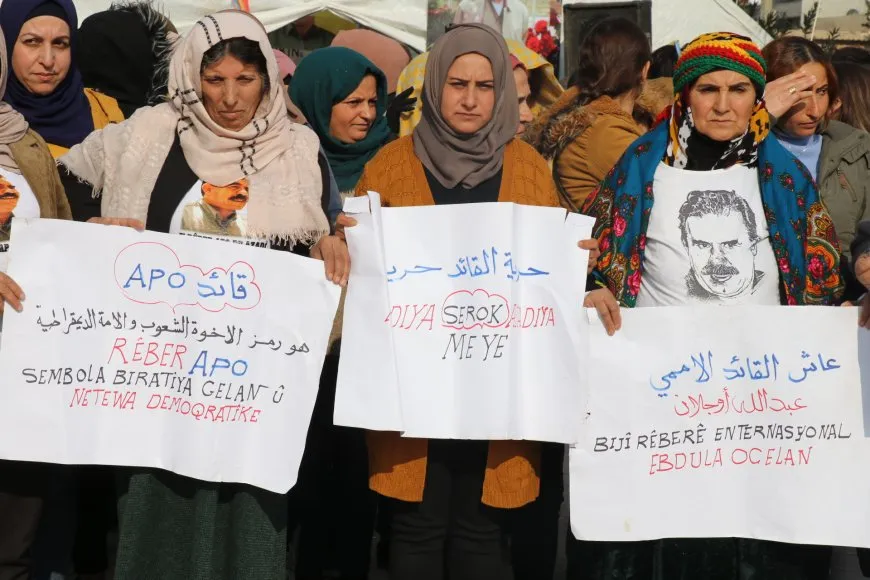 APO قائد
هو رمز الاخوة الشعوب والامة الديمقراطية
RÊBER APO
SEMBOLA BIRATIYA GELAN Û
NETEWA DEMOQRATIKE
حرية القائد حريت
DIYA SEROK AZADIYA
ME YE
عاش القائد الاممي
عبدالله أوجلان
BIJÎ RÊBERÊ ENTERNASYONAL
EBDULA OCELAN